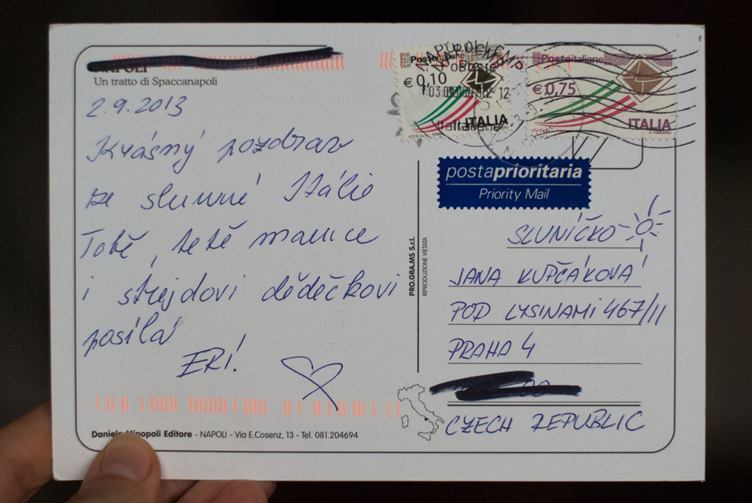 NAPOLI
Un tratto di Spaccanapoli
2.9.2013
Krásný pozdrav
ze slunné Itálie
Tobě, tetě mamce
i strejdovi dědečkovi
posílá
ERI!
Posteitaliane
€0,10
ITALIA
Posteitaliane
€0,75
ITALIA
postaprioritaria
Priority Mail
SLUNÍČKO
JANA KUPČÁKOVÁ
POD LYSINAMI 467/11
PRAHA 4
CZECH REPUBLIC
PRO.GRA.MS S.r.l.
RIPRODUZIONE VIETATA
Daniele Minopoli Editore - NAPOLI - Via E.Cosenz, 13 - Tel. 081.204694